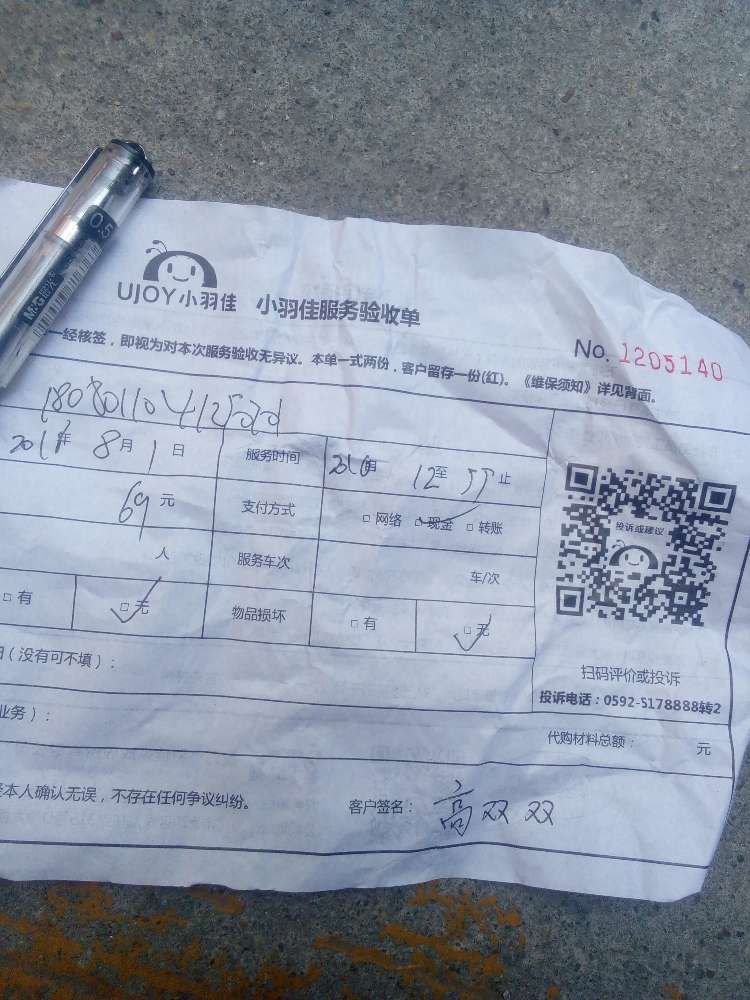 0.5
M&G
UJOY小羽佳 小羽佳服务验收单
No. 1205140
一经核签，即视为对本次服务验收无异议。本单一式两份，客户留存一份(红)。《维保须知》详见背面。
年 8月 1日 服务时间 12至 止
69元 支付方式 □ 网络 □ 现金 □ 转账
人 服务车次 车/次
□ 有 □ 无 物品损坏 □ 有 □ 无
投诉或建议
扫码评价或投诉
(没有可不填)：
投诉电话：0592-5178888转2
业务)：
代购材料总额： 元
本人确认无误，不存在任何争议纠纷。 客户签名：高双双